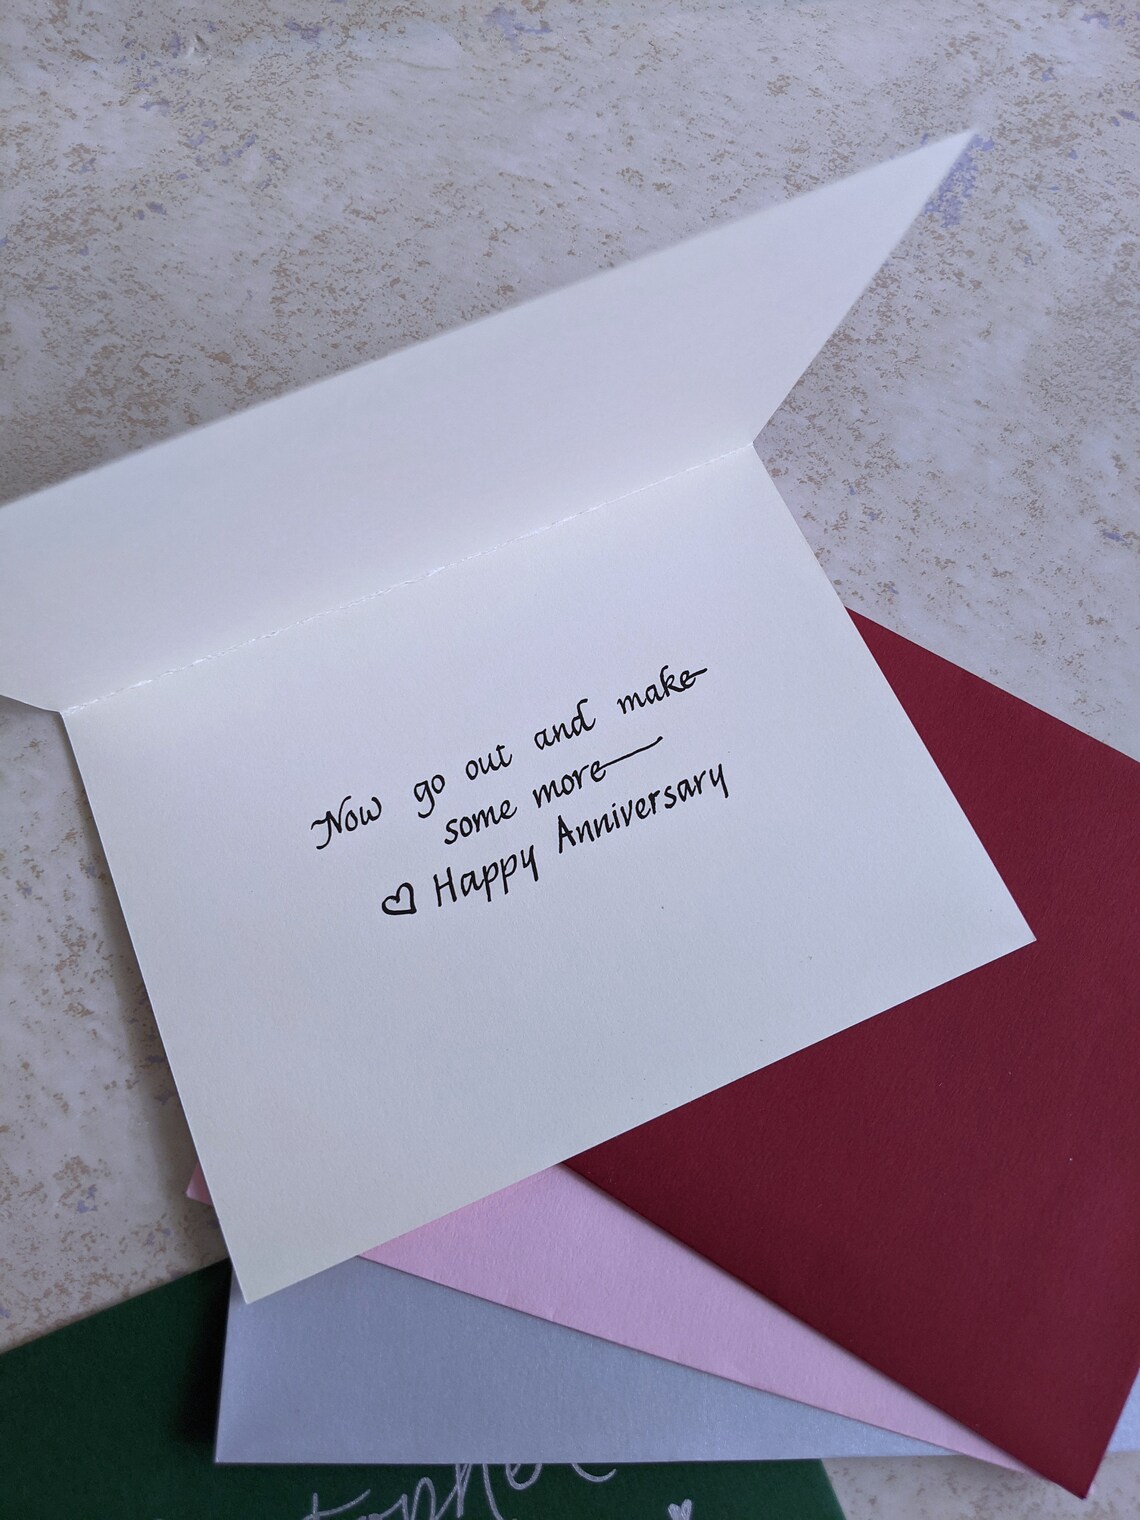 Now go out and make
some more
♡ Happy Anniversary